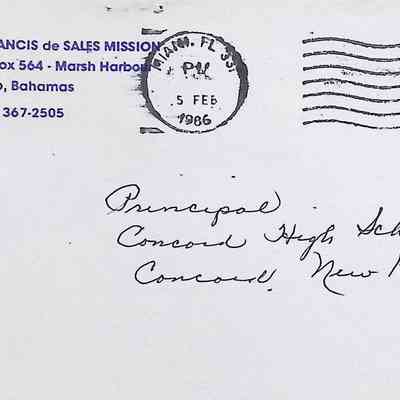 ANCIS de SALES MISSION
ox 564 - Marsh Harbor
o, Bahamas
367-2505
MIAMI, FL 331
PM
5 FEB
1986
Principal
Concord High Sch
Concord, New